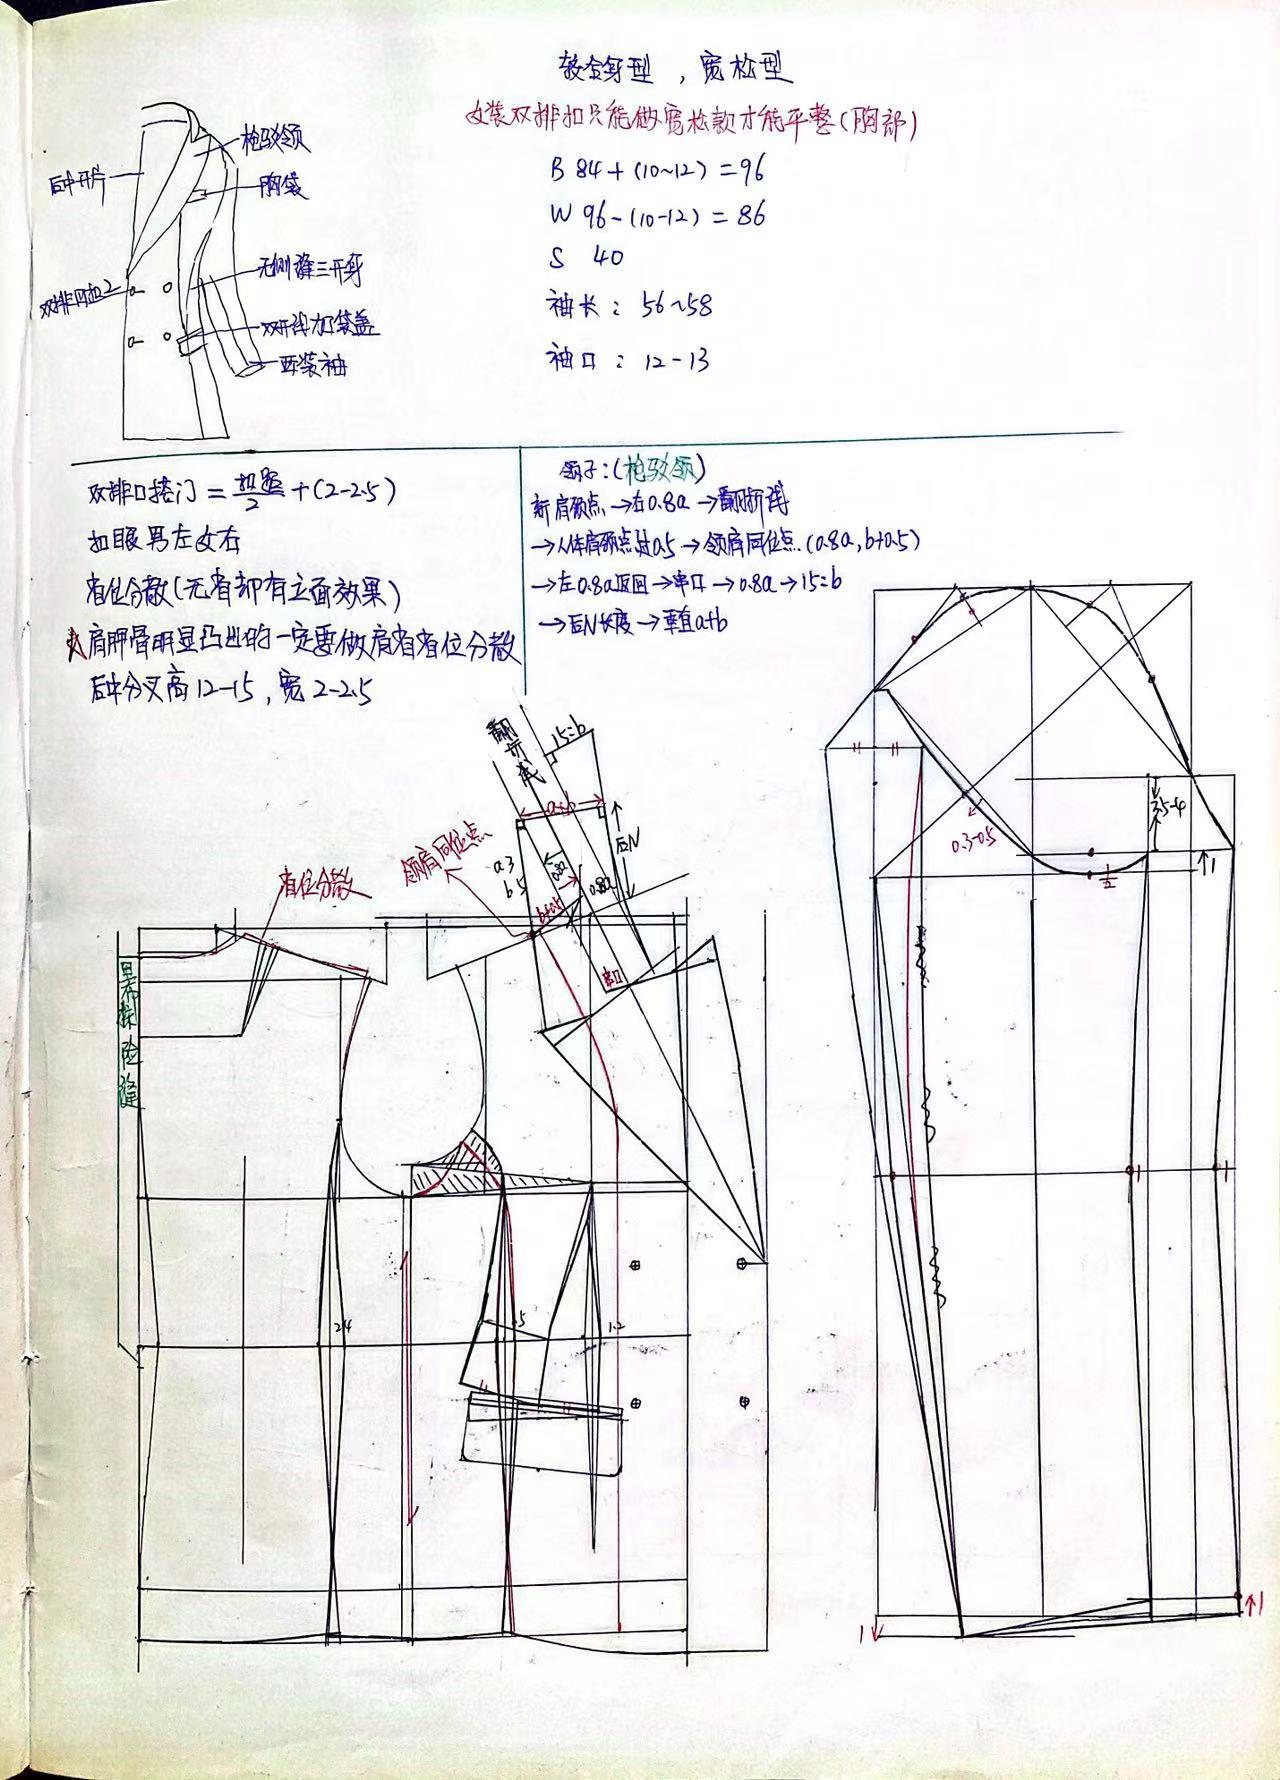 较合身型，宽松型
女装双排扣只能做宽松款才能平整(胸部)
B 84+(10~12)=96
W 96-(10-12)=86
S 40
袖长：56~58
袖口：12-13
后中开片
枪驳领
胸袋
无侧缝三开身
双排扣
双开线加袋盖
西装袖
双排口搭门=扣距/2+(2-2.5)
扣眼男左女右
省位分散(无省却有立面效果)
肩胛骨明显凸出的一定要做肩省省位分散
后中分叉高12-15，宽2-2.5
领子：(枪驳领)
新肩颈点→右0.8a→翻折线
→人体肩颈点过0.5→领肩同位点(0.8a,b+0.5)
→左0.8a返回→串口→0.8a→15=b
→后N长度→垂直a+b
翻折线
15=b
a+b
后N
a3
b5
0.8a
0.8a
b+0.5
串口
领肩同位点
省位分散
里布保险缝
2.4
1.5
1.2
0.3-0.5
3.5-4
1/2
↑1
1↓
↑1